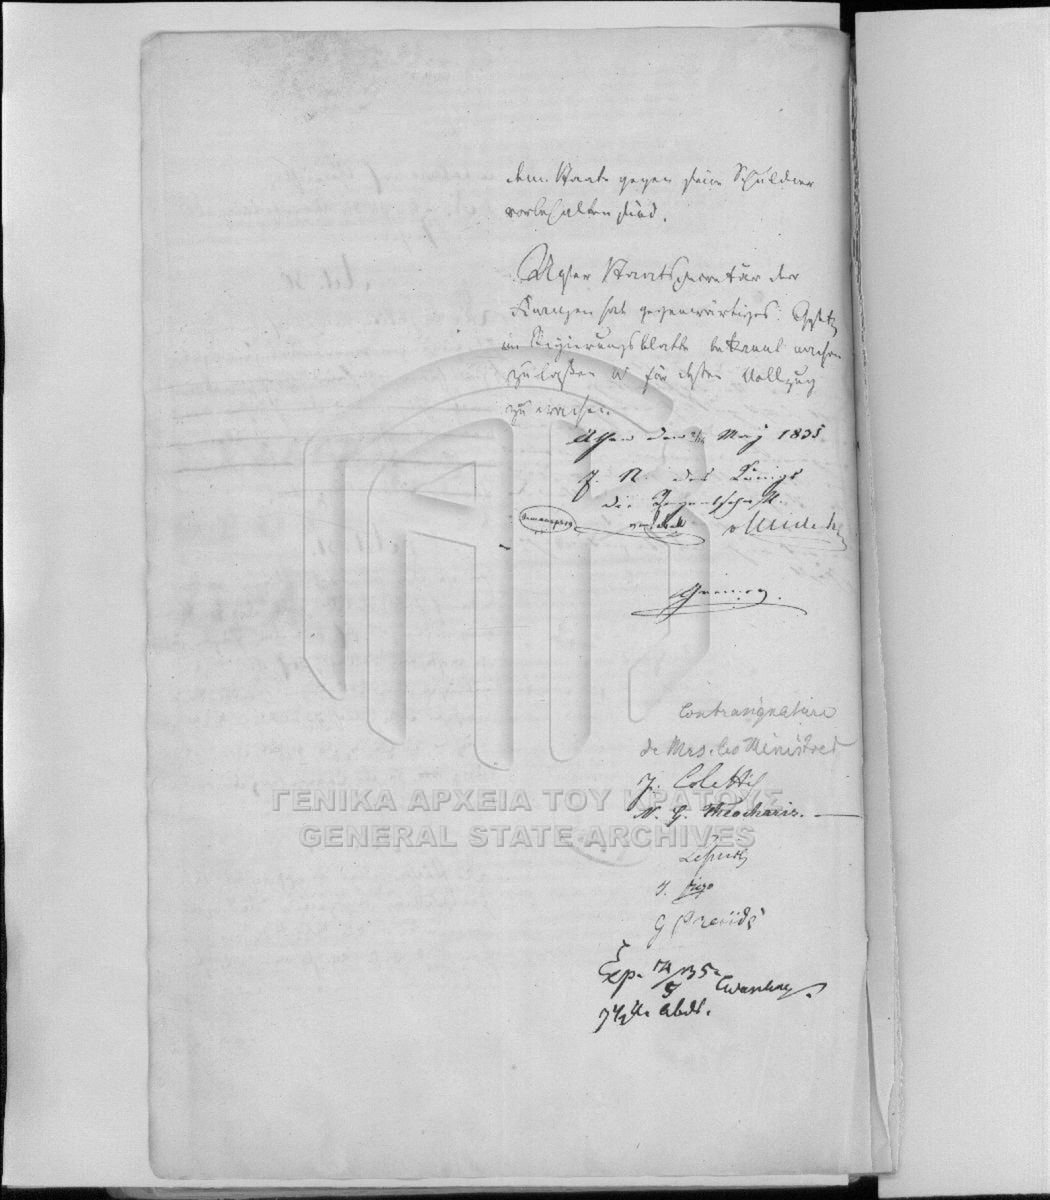 dem Staate gegen seine Schuldner
vorbehalten sind.
Unser Staatssecretär der
Finanzen hat gegenwärtiges Gesetz
im Regierungsblatte bekannt machen
zu lassen u für dessen Vollzug
zu wachen.
Athen den May 1835
J. N. des Königs
die Regentschaft.
Armansperg
Kobell v Heideck
Greiner
Contresignature
de Mrs. les Ministres
J. Colettis
N. G. Theocharis.
Lesuire
G Praidis
Exp.
ΓΕΝΙΚΑ ΑΡΧΕΙΑ ΤΟΥ ΚΡΑΤΟΥΣ
GENERAL STATE ARCHIVES